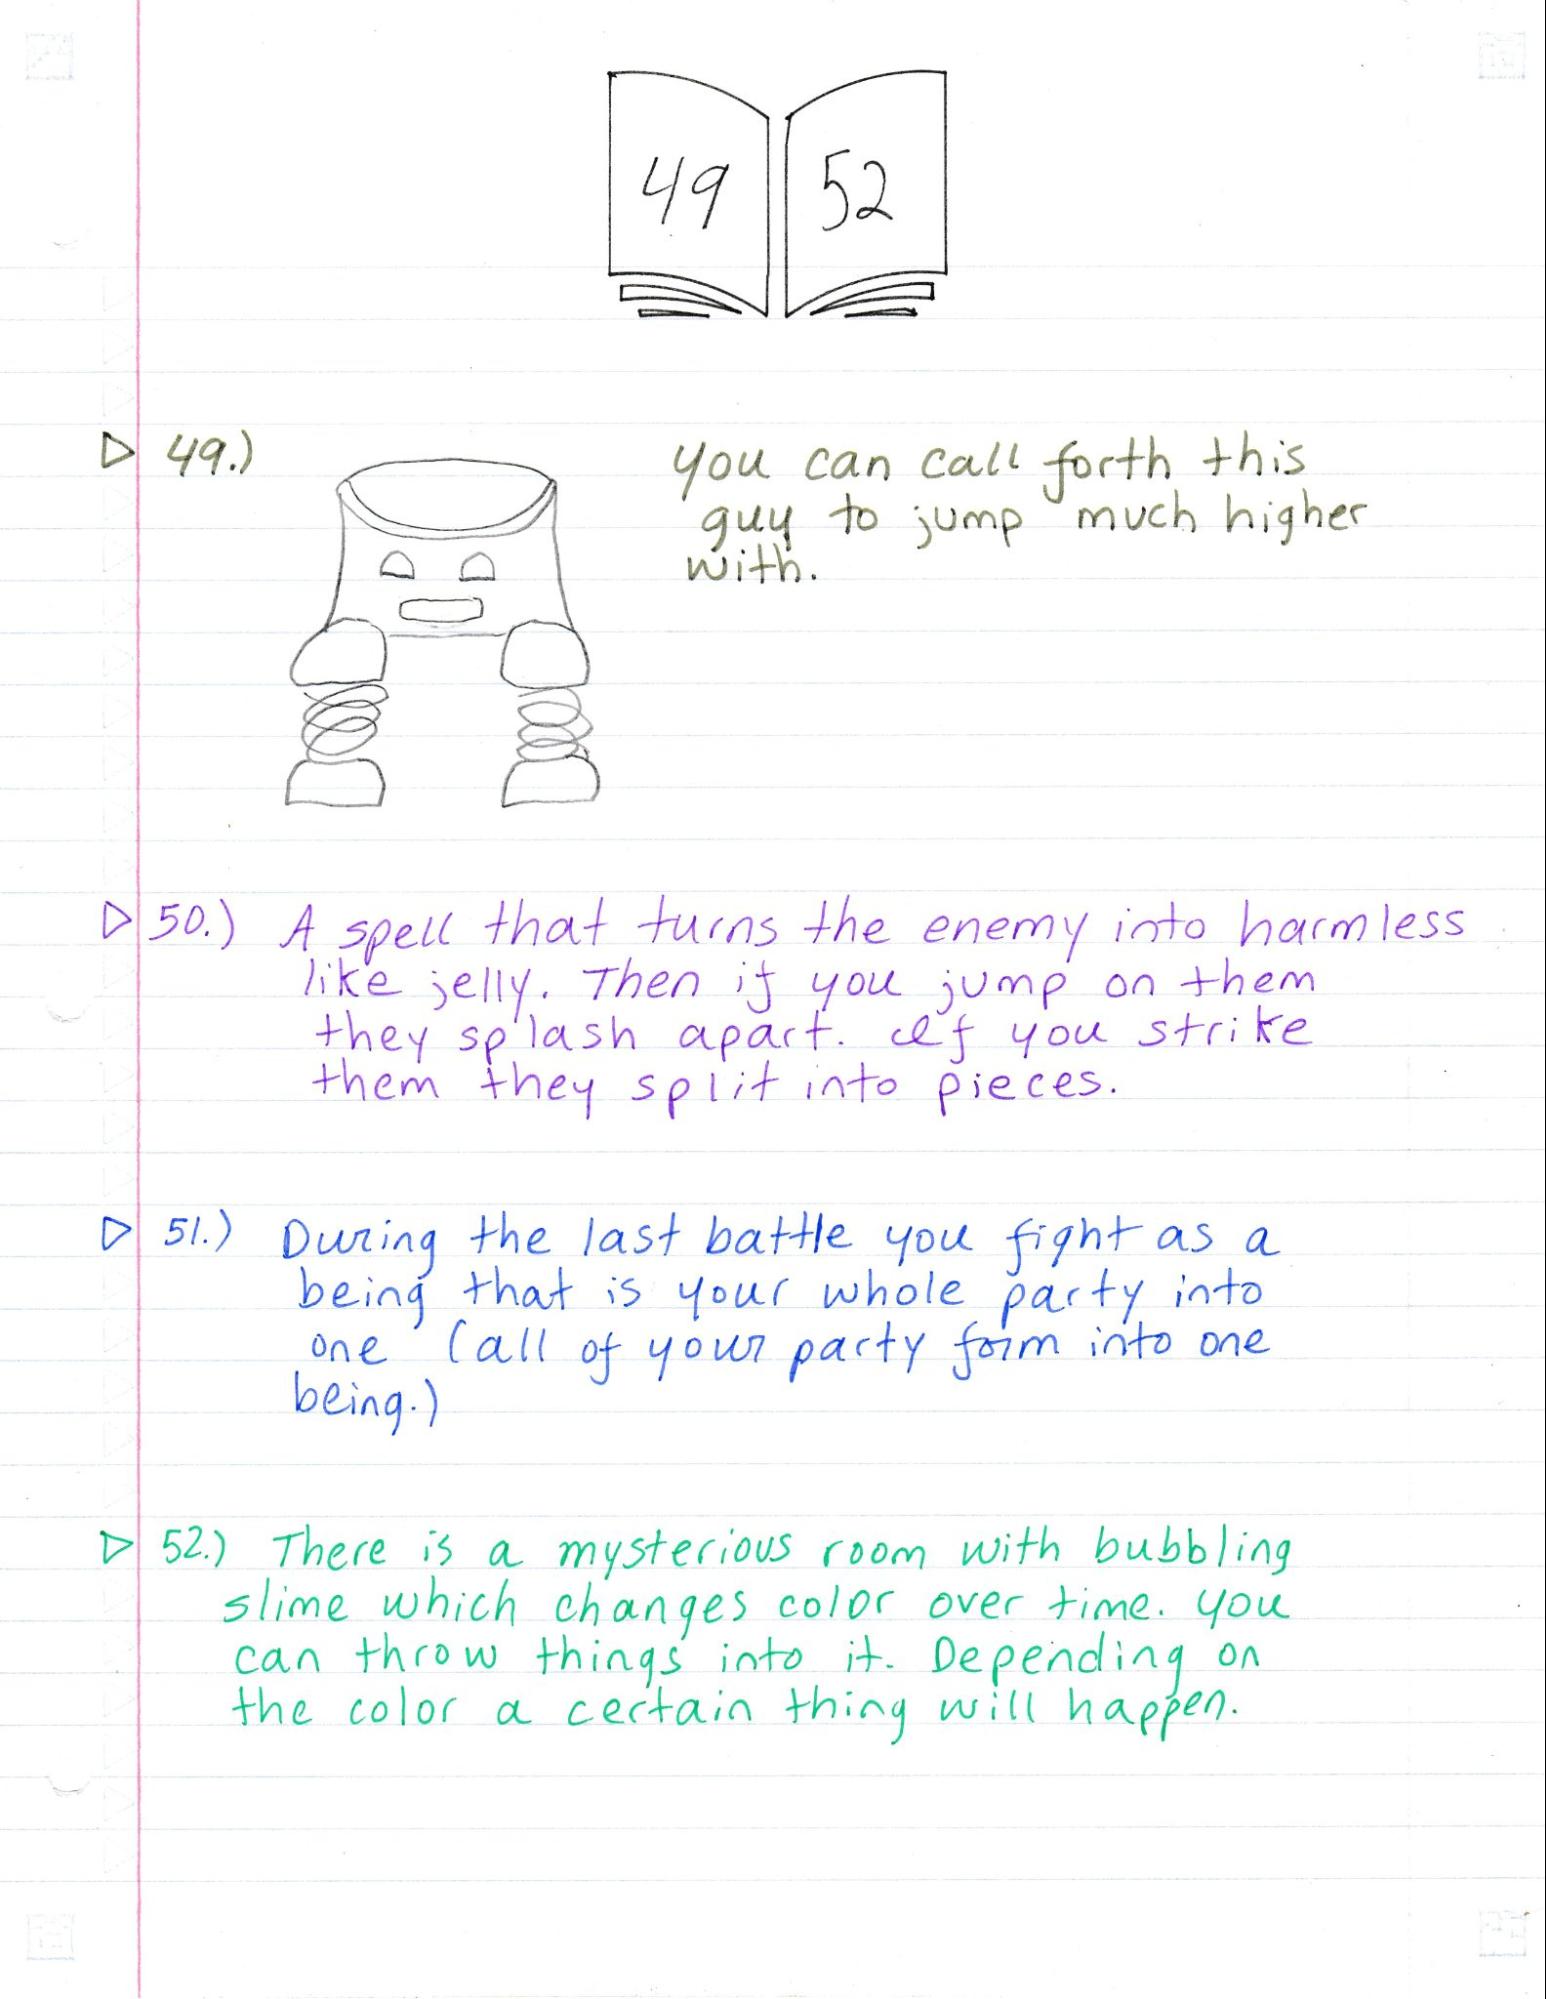 49 52
49.) you can call forth this
guy to jump much higher
with.
50.) A spell that turns the enemy into harmless
like jelly. Then if you jump on them
they splash apart. If you strike
them they split into pieces.
51.) During the last battle you fight as a
being that is your whole party into
one (all of your party form into one
being.)
52.) There is a mysterious room with bubbling
slime which changes color over time. you
can throw things into it. Depending on
the color a certain thing will happen.